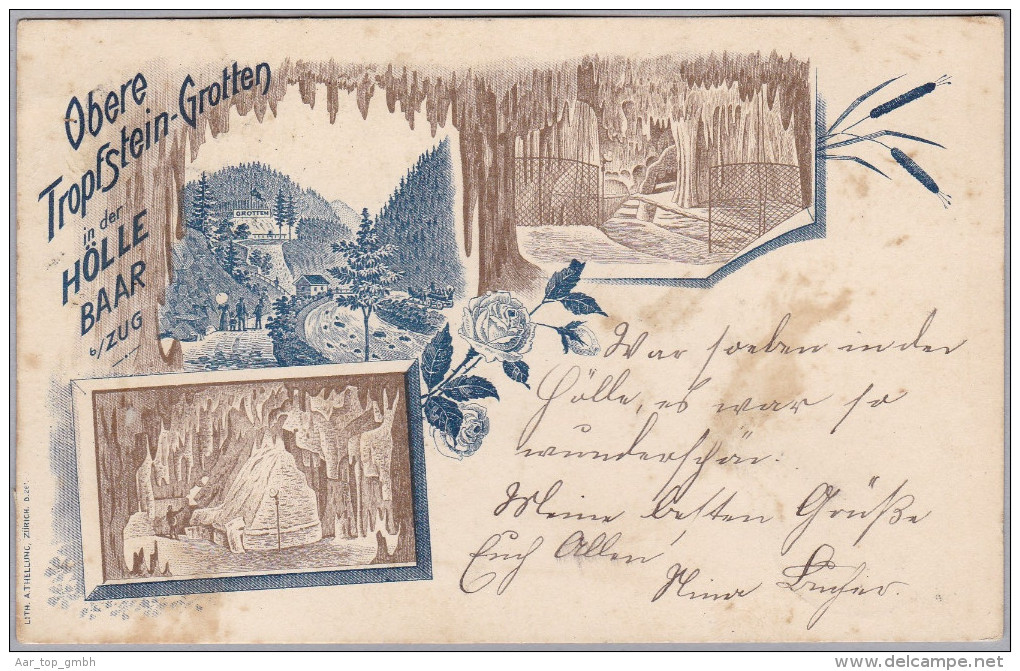 Obere
Tropfstein-Grotten
in der
HÖLLE
BAAR
b/ZUG
GROTTEN
War soeben in der
Hölle, es war so
wunderschön.
Meine besten Grüße
Euch Allen
Nina Bucher.
LITH. A. THELLUNG, ZÜRICH.
Aar_top_gmbh
delcampe.net